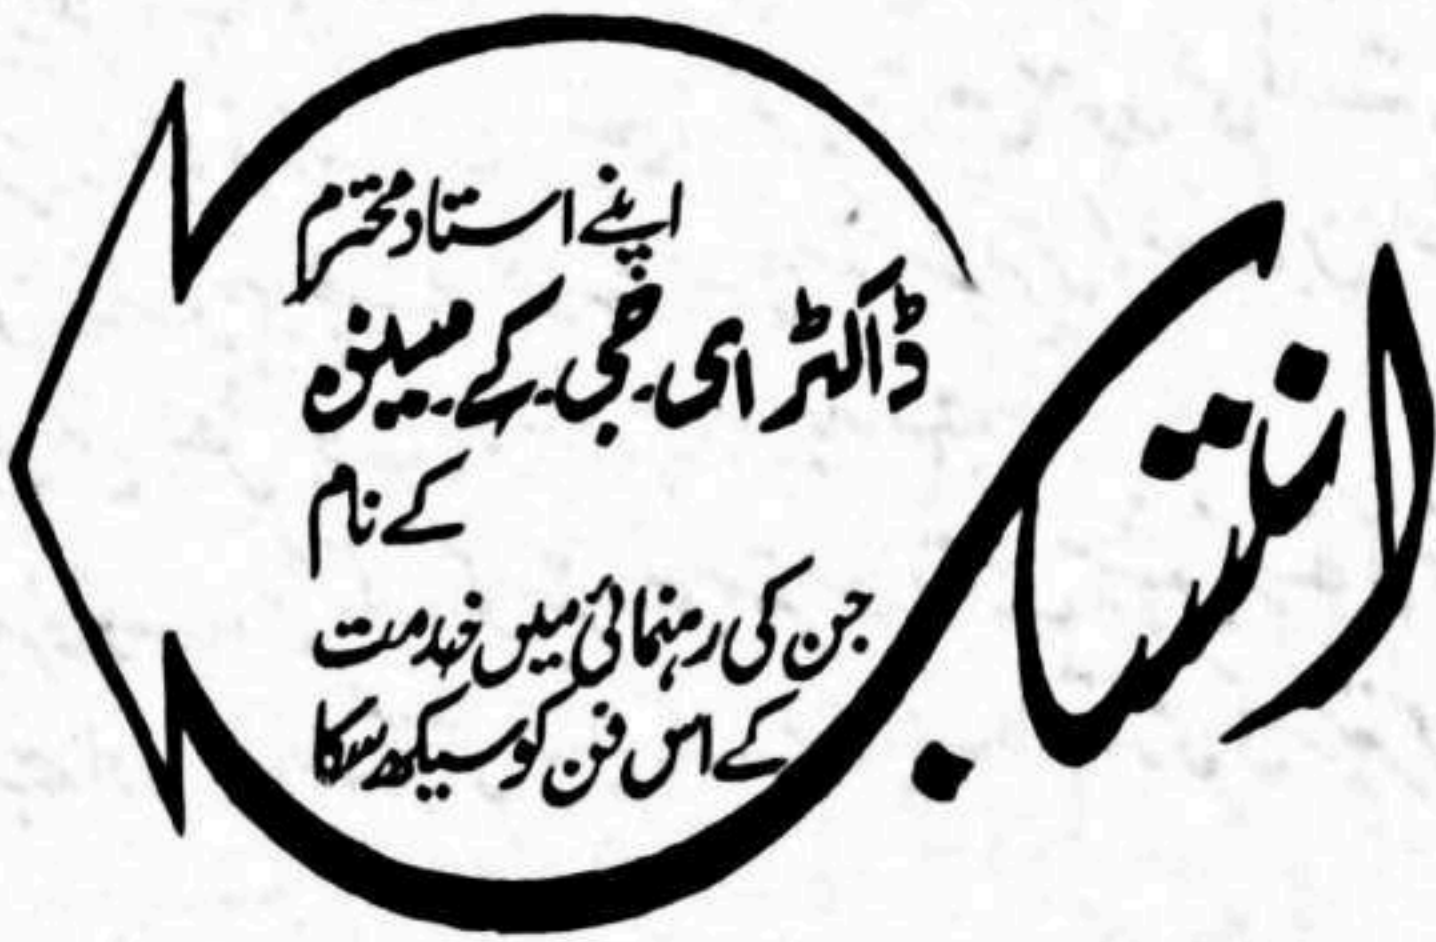 انتساب
اپنے استاد محترم
ڈاکٹر ای۔جی۔کے۔مینزہ
کے نام
جن کی رہنمائی میں خدمت
کے اس فن کو سیکھ سکا